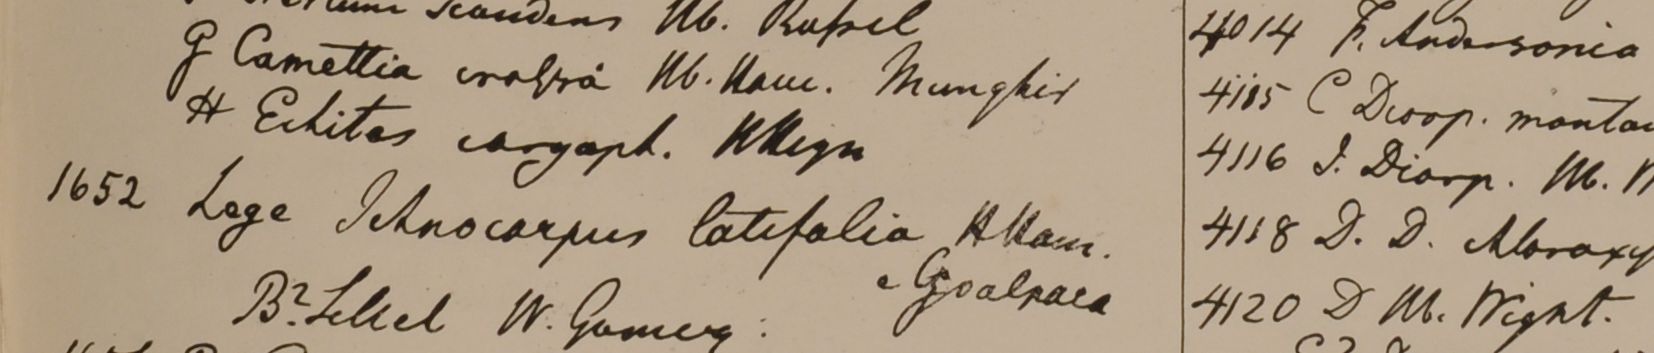 scandens Hb. Russel
G Camettia Hb. Ham. Munghir
H Echites caryoph. HHeyn
1652 Lege Ichnocarpus latifolia HHam.
e Goalpara
B? Silhet W. Gomez.
4014 F. Andersonia
4115 C Diosp. monta
4116 I. Diosp. Hb.
4118 D. D.
4120 D Hb. Wight.